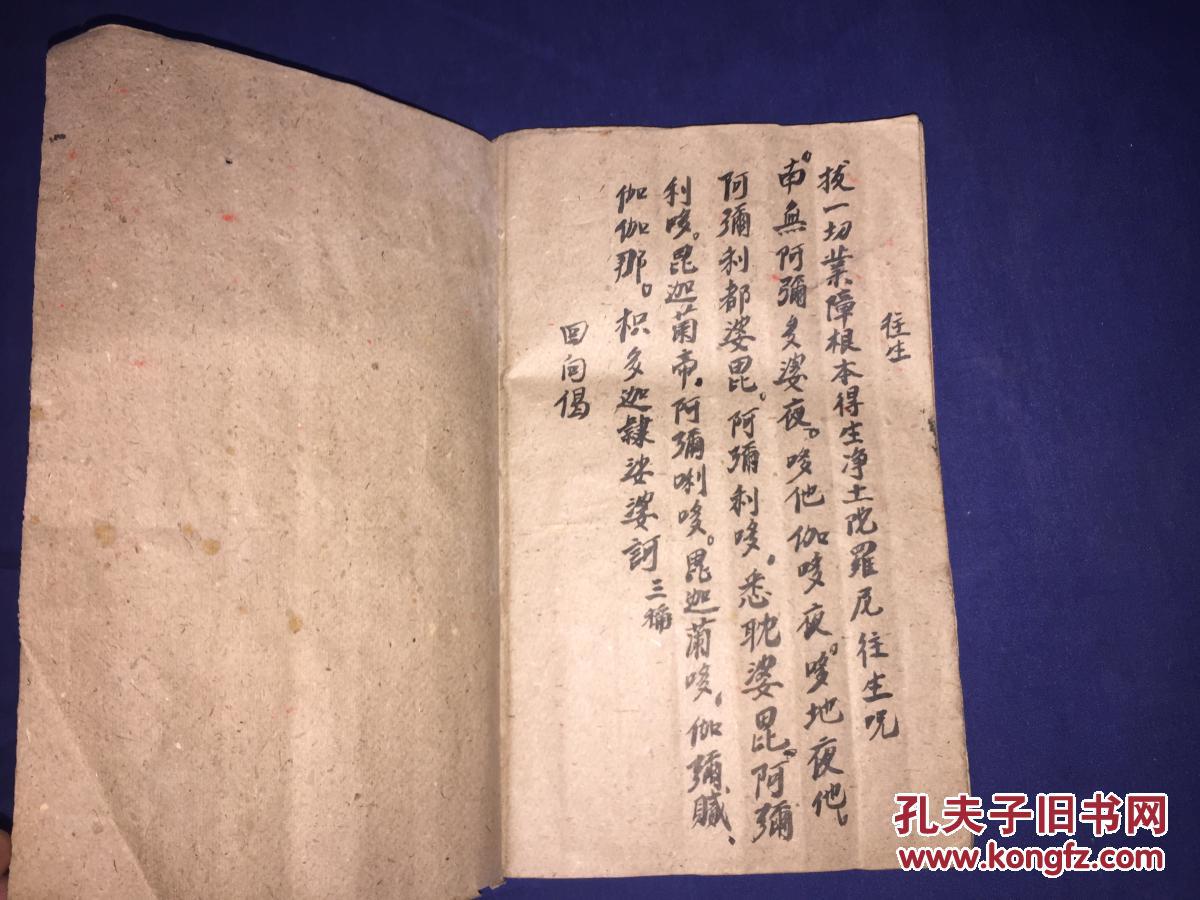 往生
拔一切業障根本得生净土陀羅尼 往生呪
南無阿彌多婆夜。哆他伽哆夜。哆地夜他。
阿彌利都婆毘。阿彌利哆。悉耽婆毘。阿彌
利哆。毘迦蘭帝。阿彌唎哆。毘迦蘭哆。伽彌膩、
伽伽那。枳多迦隸娑婆訶 三稱
回向偈
孔夫子旧书网
www.kongfz.com